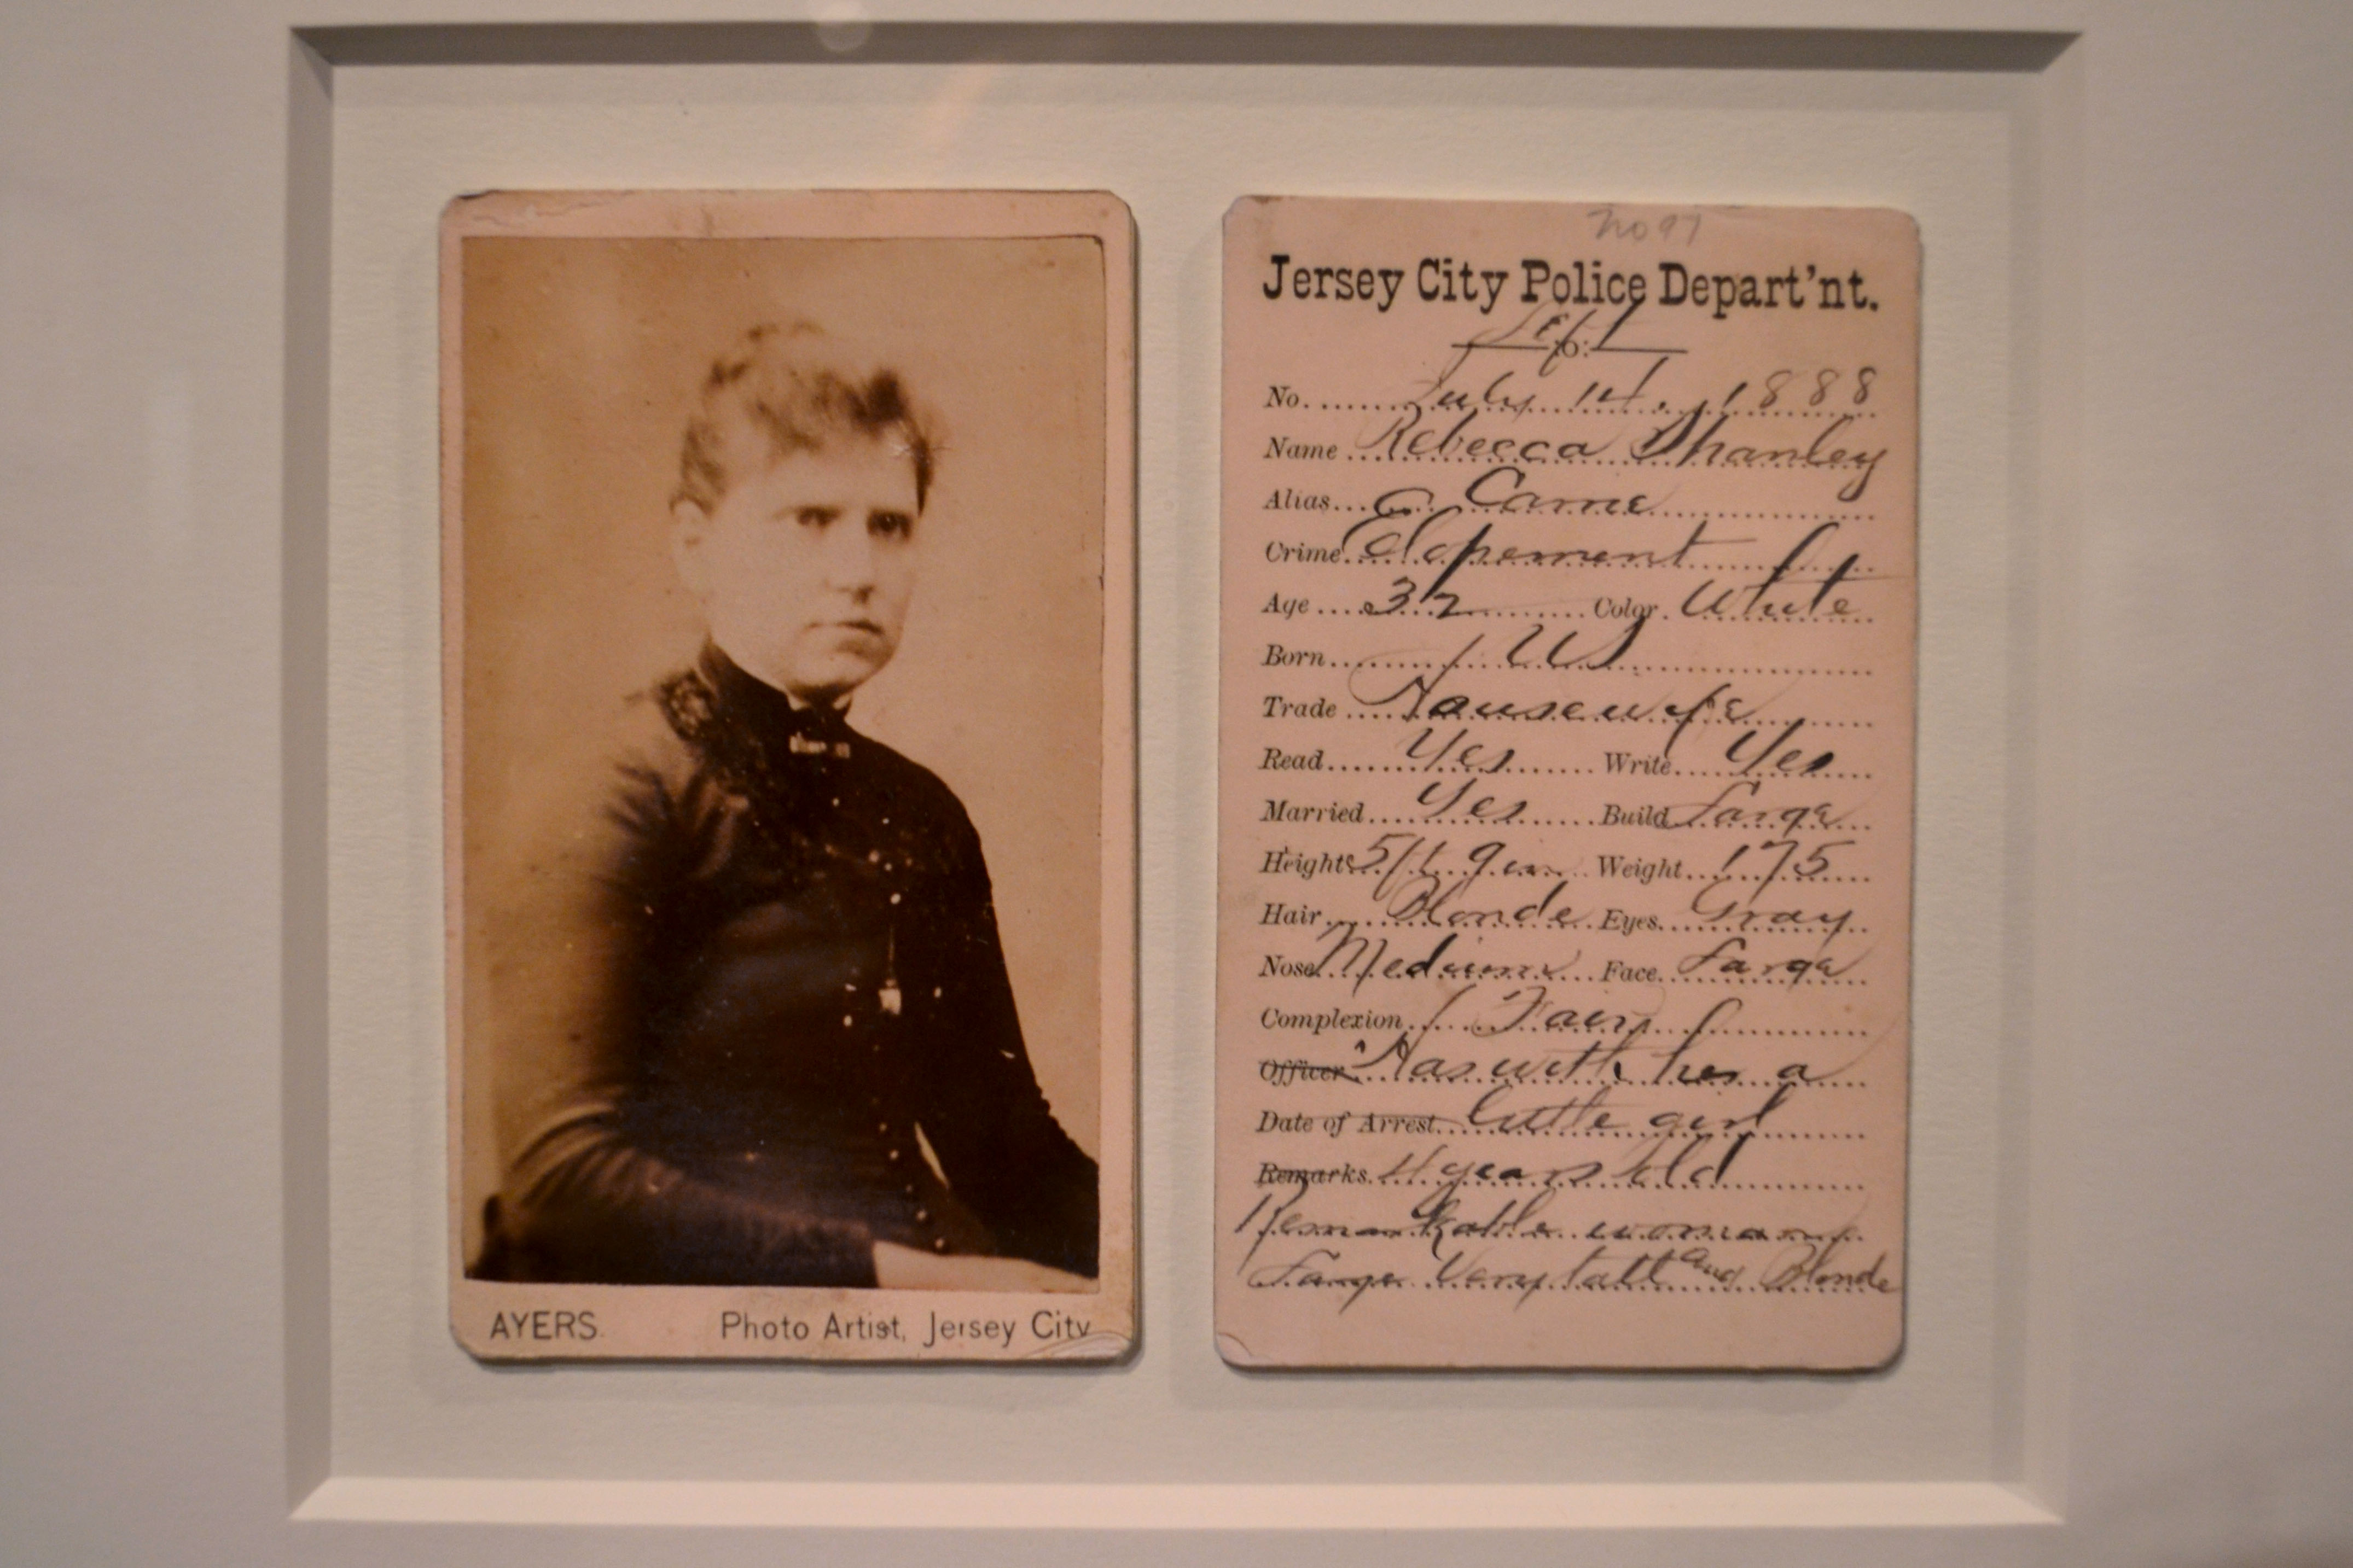 AYERS. Photo Artist, Jersey City
No 97
Jersey City Police Depart'nt.
Left
No. July 14, 1888
Name Rebecca Shanley
Alias Carrie
Crime Elopement
Age 32 Color White
Born US
Trade Housewife
Read Yes Write Yes
Married Yes Build Large
Height 5 ft 9 in Weight 175
Hair Blonde Eyes Gray
Nose Medium Face Large
Complexion Fair
Officer Has with her a
Date of Arrest little girl
Remarks 4 years old
Remarkable woman
Large Very tall and Blonde